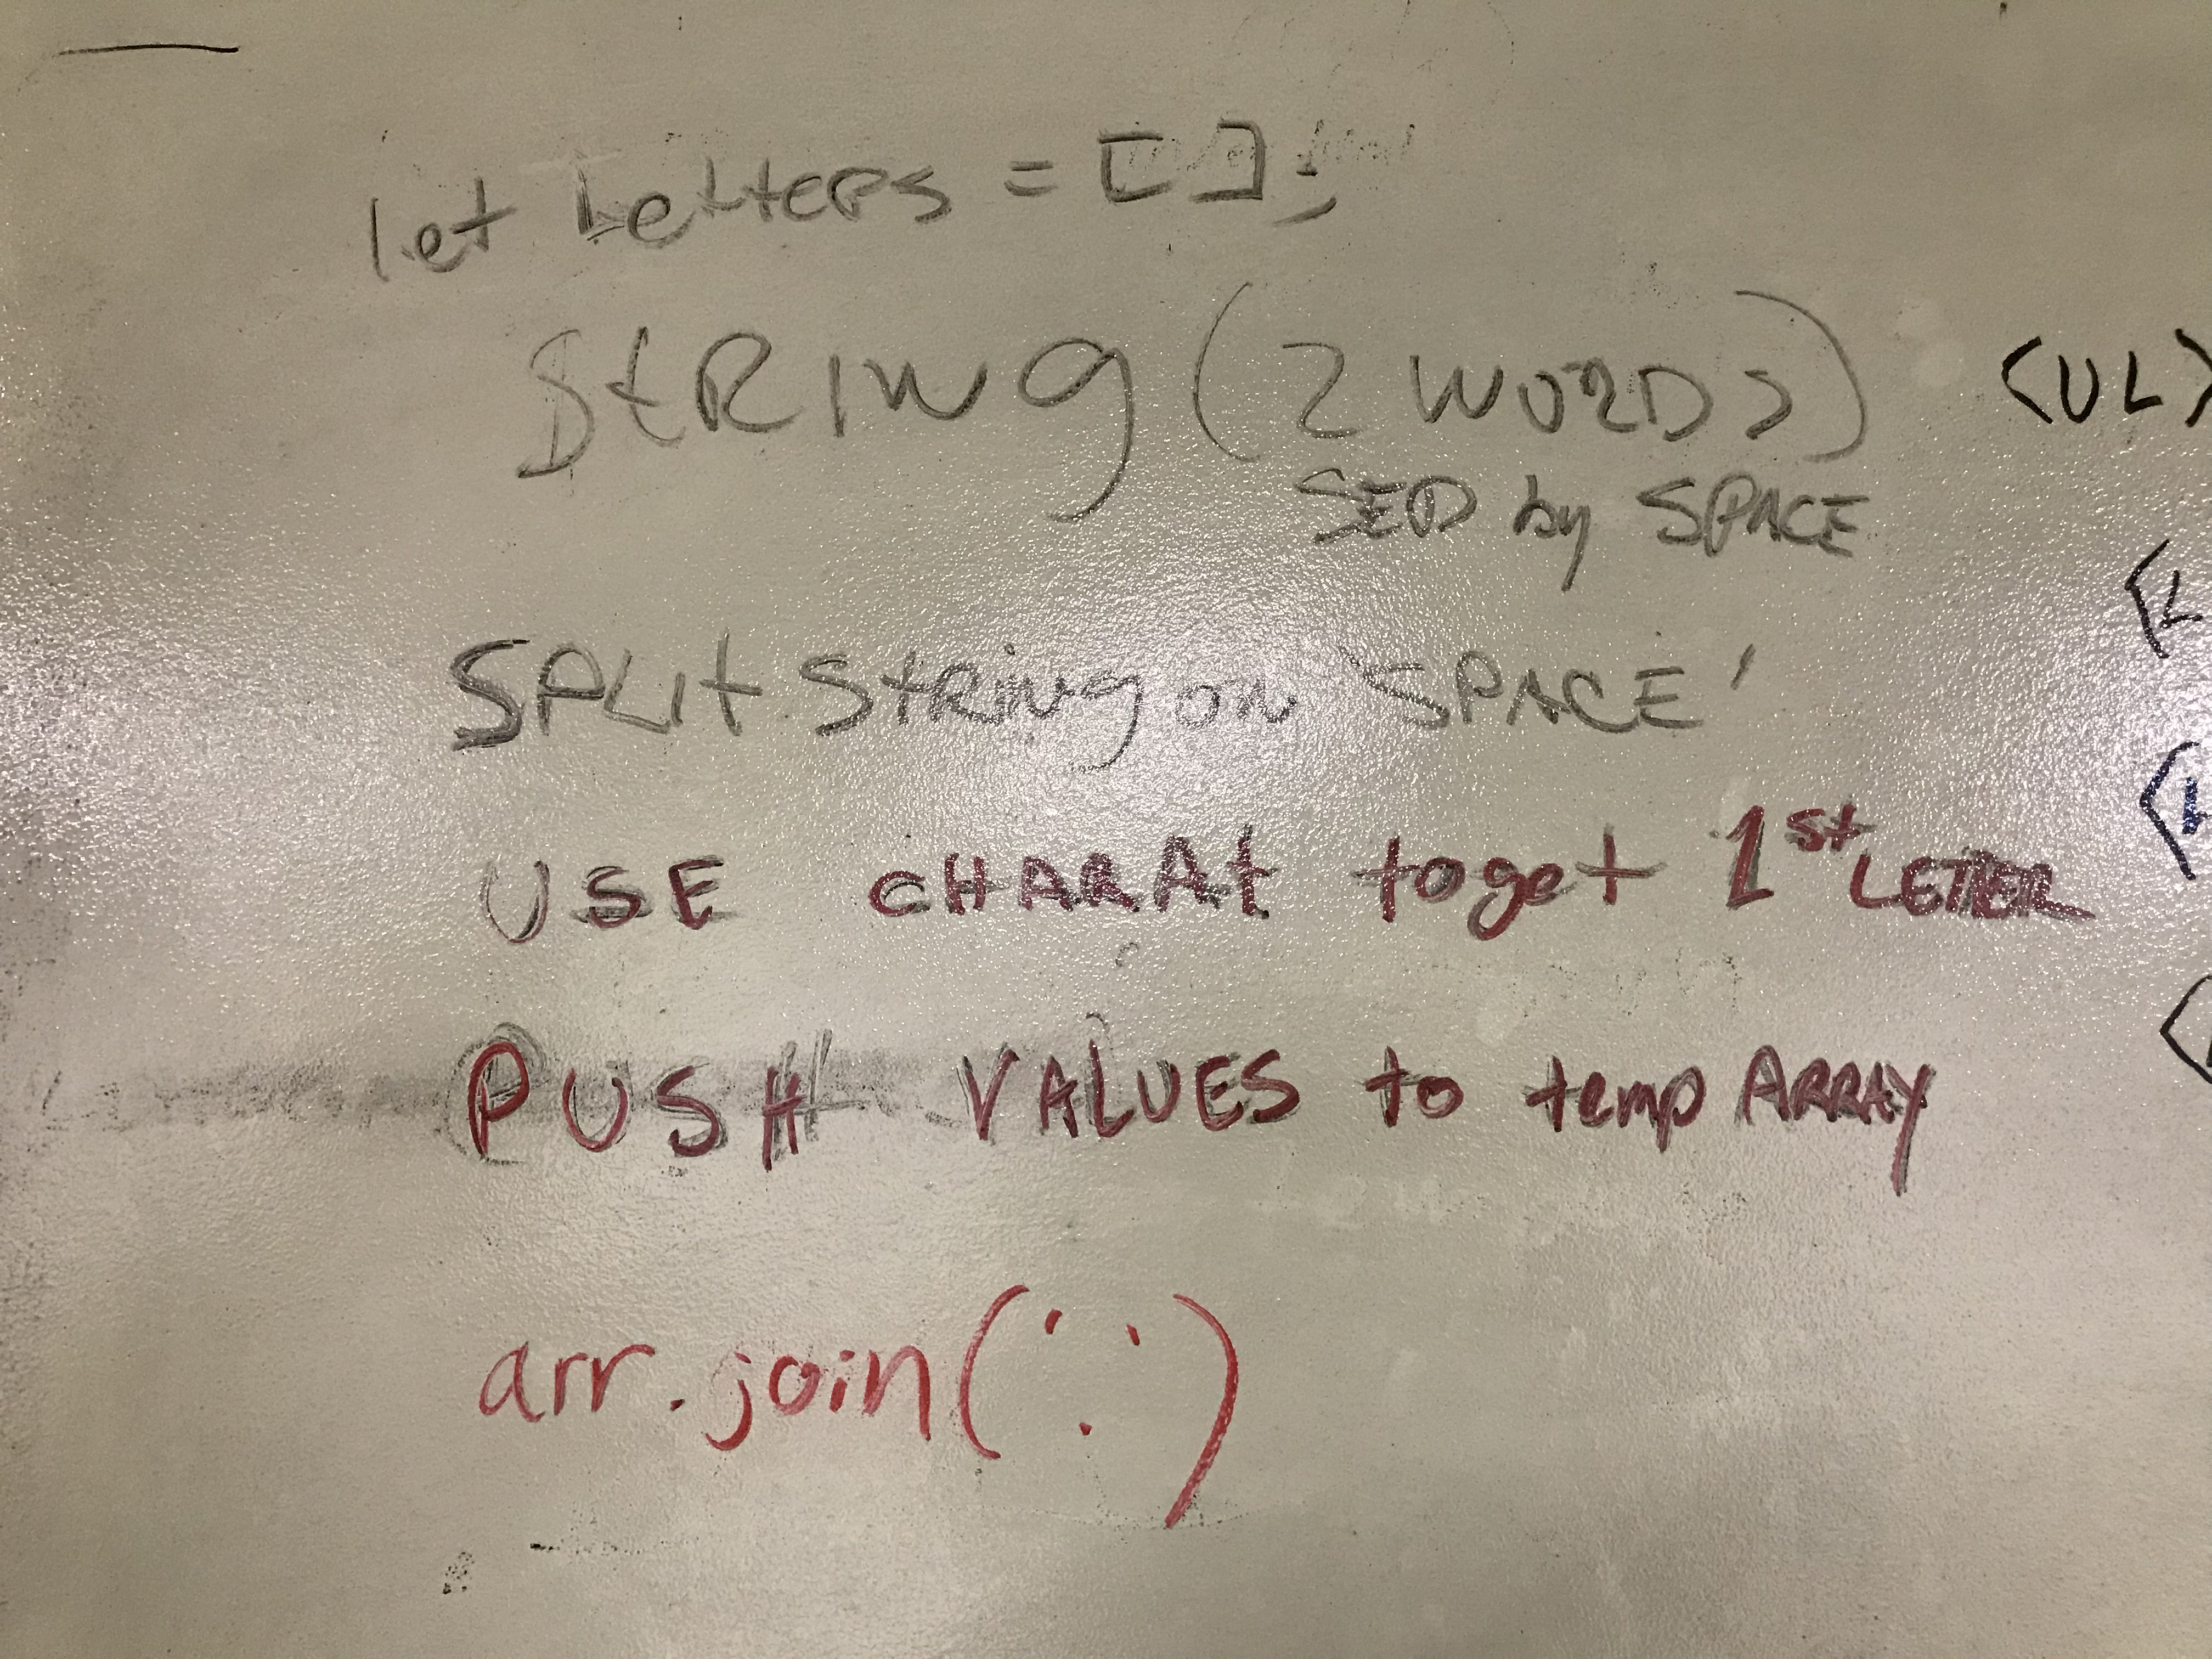 let Letters = [ ];
StRINg (2 WORDS)
<UL>
SEP by SPACE
SPLIt StRINg on 'SPACE'
USE CHARAt to get 1st LETTER
PUSH VALUES to temp ARRAY
arr.join('.')